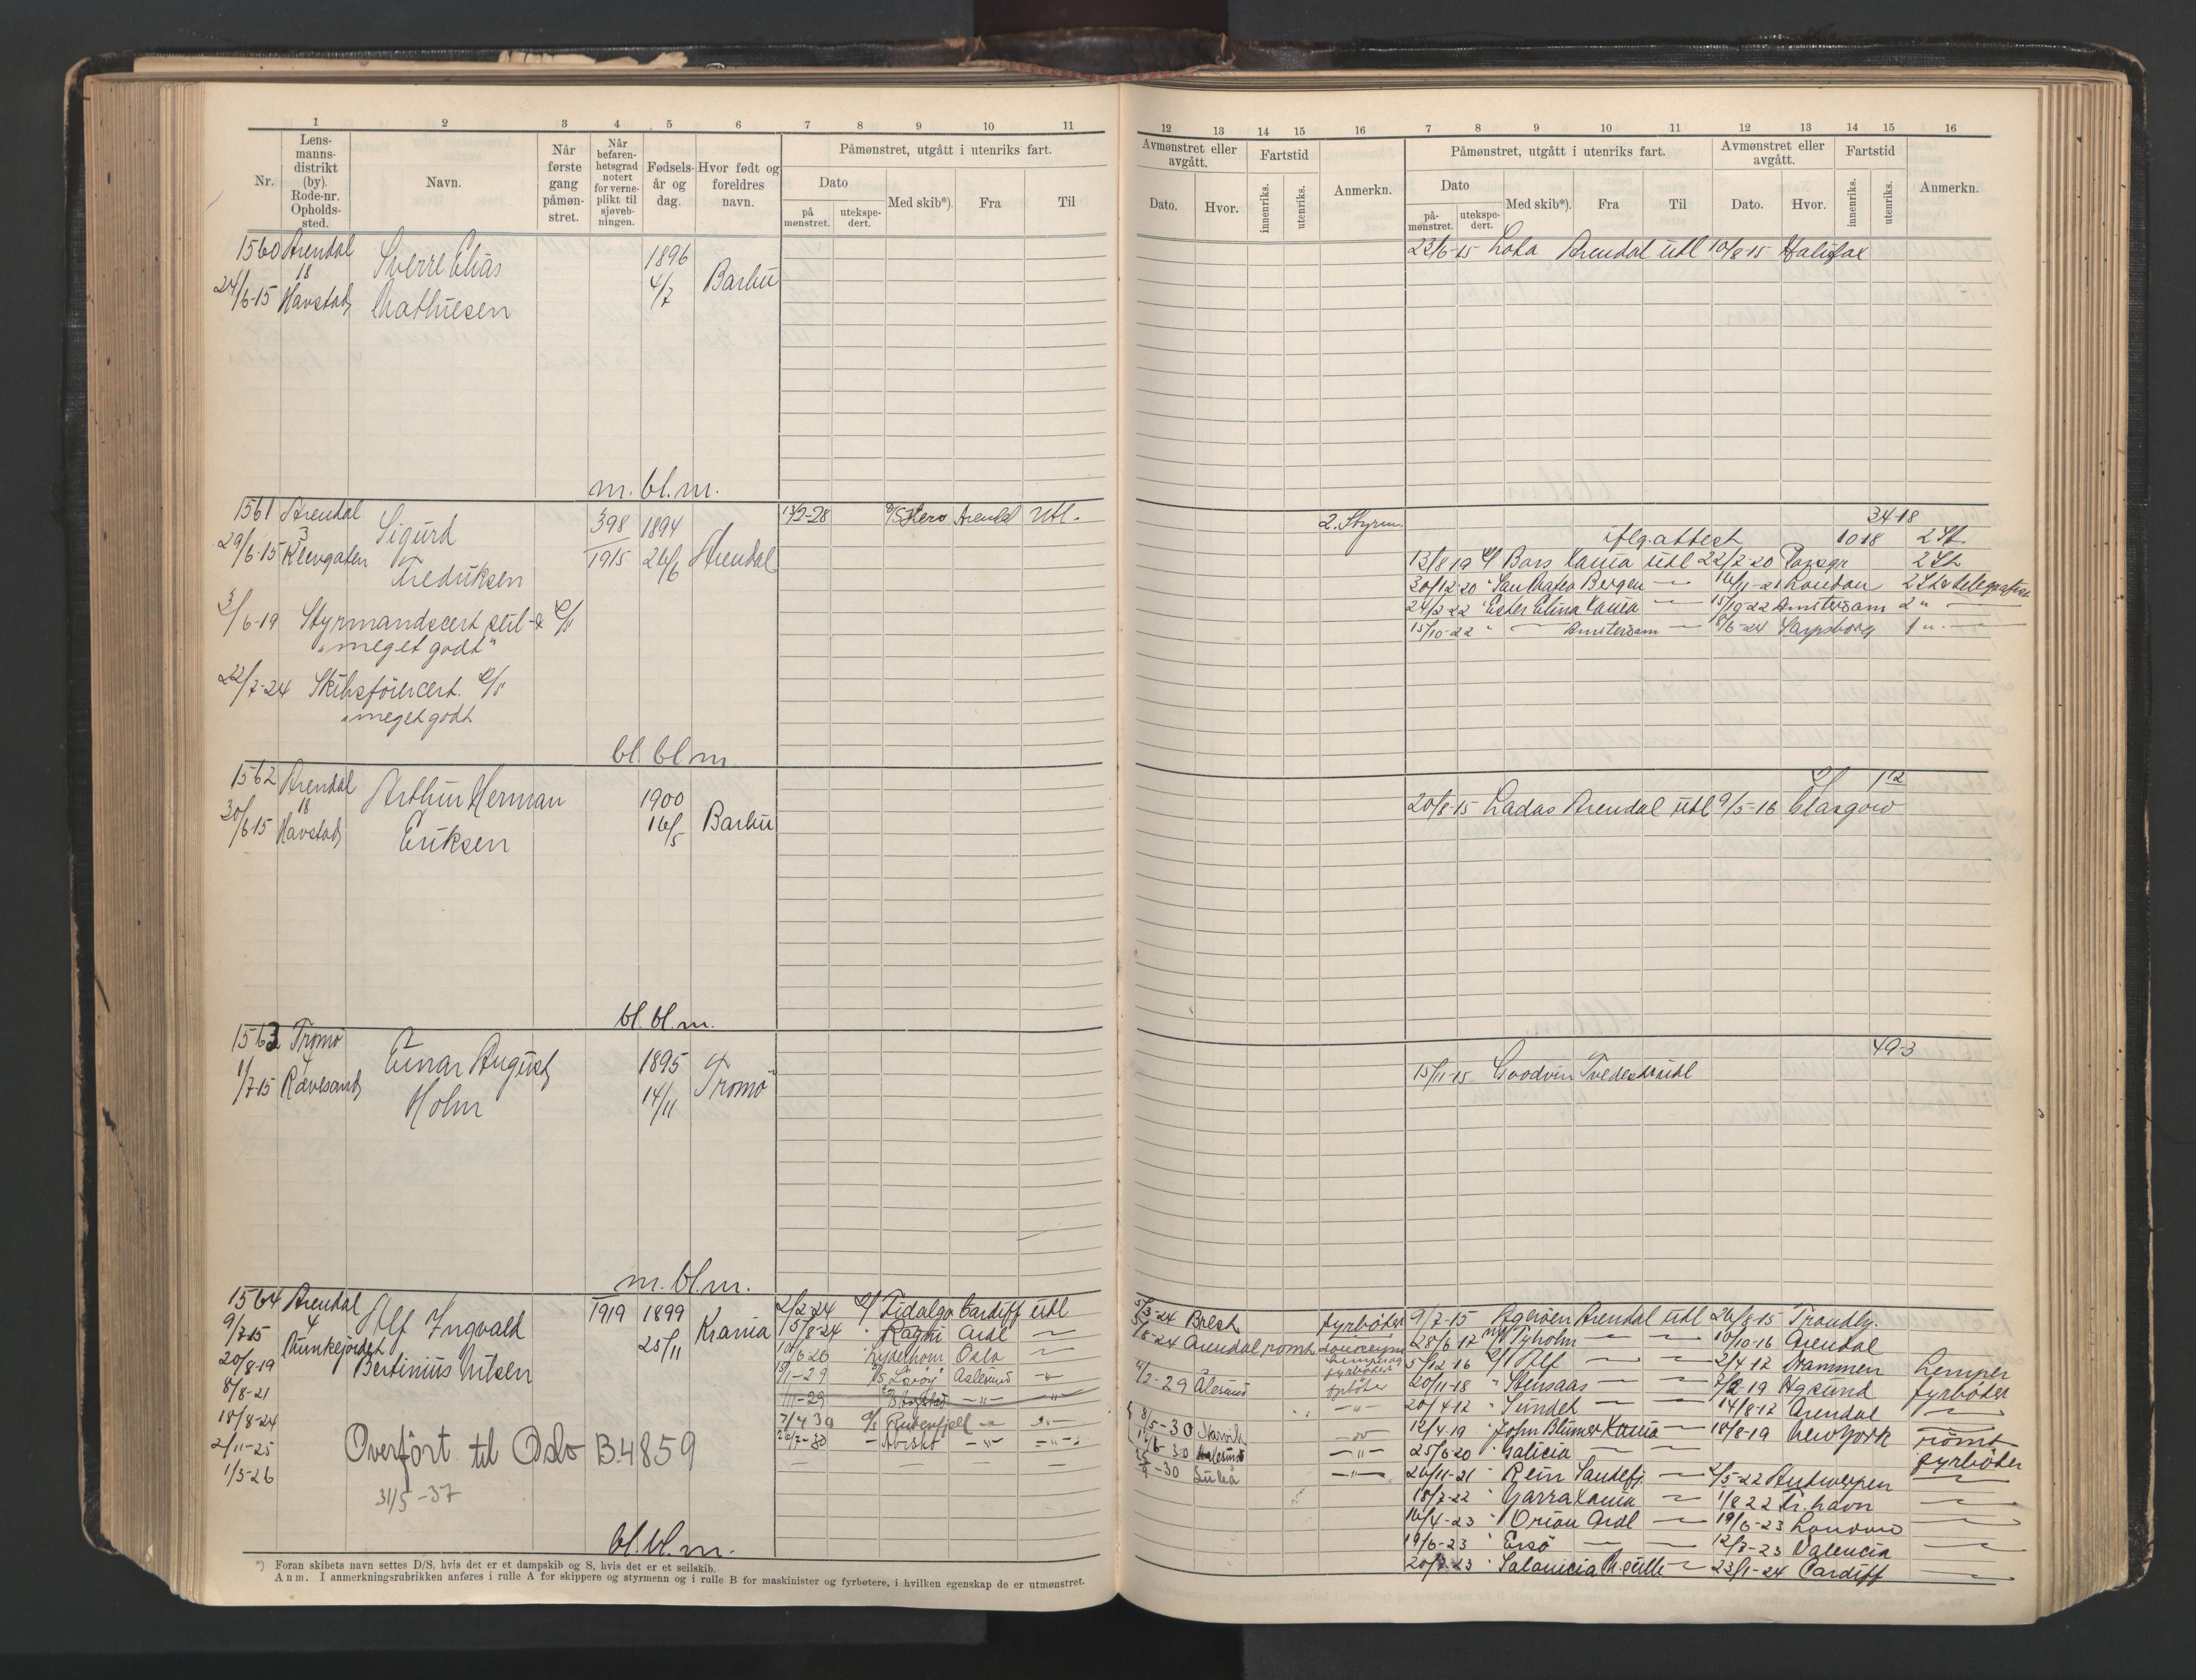 1 2 3 4 5 6 7 8 9 10 11
Nr. Lens-manns-distrikt (by). Rode-nr. Opholds-sted. Navn. Når første gang påmøn-stret. Når befaren-hetsgrad notert for verne-plikt til sjøveb-ningen. Fødsels-år og dag. Hvor født og foreldres navn. Påmønstret, utgått i utenriks fart.
Dato Med skib*). Fra Til
på mønstret. utekspe-dert.
1560 Arendal Sverre Elias 1896
24/6-15 18 Havstad Mathiesen 4/7 Barbu
m. bl. m.
1561 Arendal Sigurd 398 1894 13/2-28 D/S Hero Arendal Utl.
29/6-15 3 Klevgaten Fredriksen 1915 26/6 Arendal
3/6-19 Styrmandscert
"meget godt"
22/7-24 Skibsførercert.
"meget godt
bl. bl m
1562 Arendal Arthur Herman 1900
30/6-15 18 Havstad Eriksen 16/5 Barbu
bl. bl. m.
1563 Tromø Einar August 1895
1/7-15 4 Rævesand Holm 14/11 Tromø
m. bl. m.
1564 Arendal Alf Ingvald 1919 1899 Krania 2/2-24 Fidalgo Cardiff utl
9/7-15 4 Munkejordet Bertinius Nilsen 25/11 15/8-24 Ragni Ardl
20/8-19 Oslo
8/8-21 Aalesund
18/8-24
2/11-25 Overført til Oslo B.4859 Rutenfjell
1/3-26 31/5-37 Abisko
bl. bl. m.
*) Foran skibets navn settes D/S, hvis det er et dampskib og S, hvis det er et seilskib.
Anm. I anmerkningsrubrikken anføres i rulle A for skippere og styrmenn og i rulle B for maskinister og fyrbøtere, i hvilken egenskap de er utmønstret.
12 13 14 15 16 7 8 9 10 11 12 13 14 15 16
Avmønstret eller avgått. Fartstid Anmerkn. Påmønstret, utgått i utenriks fart. Avmønstret eller avgått. Fartstid Anmerkn.
Dato. Hvor. innenriks. utenriks. Dato Med skib*). Fra Til Dato. Hvor. innenriks. utenriks.
på-mønstret. utekspe-dert.
22/6-15 Lota Arendal utl 10/8-15 Halifax
34-18
2. Styrm. iflg. attest 1018 2 St
13/8 19 Bars Krania utl 22/2-20 Porsgr 2 St
30/12-20 " San Mateo Bergen 16/11-21 London 2 St & telegrafist
24/2-22 " Ester Elina Krania 15/10-22 Amsterdam 2 "
15/10-22 " Amsterdam 8/6-24 Sarpsborg 1 "
112
20/8-15 Ladas Arendal utl 9/5-16 Glasgow
49-3
15/11-15 Goodwin Tvedestr utl
5/3-24 Brest fyrbøder 9/7-15 Agerøen Arendal utl 26/8-15 Trondhj.
1/8-24 Arendal rømt 28/6-17 Tyholm 10/10-16 Arendal
5/12 16 Alf 2/4-17 Drammen Lemper
4/2-29 Ålesund 20/11-18 " Stensaas 7/2-19 Høgsund fyrbøder
20/4-17 " Sundet 14/8-17 Arendal
8/5-30 Narvik 12/4-19 " John Blumer Krania 18/8-19 New York rømt
17/6-30 Aalesund 25/6-20 " Galicia fyrbøder
-30 Luleå 26/11-21 " Rein Sandefj. 2/5-22 Antwerpen
18/7-22 " Garra Krania 1/8 22 Fr. havn
16/4-23 " Orion Ardl 19/6-23 London
19/6-23 " Ersø 12/7-23 Valencia
20/7-23 " Salonicia M.seille 23/1-24 Cardiff